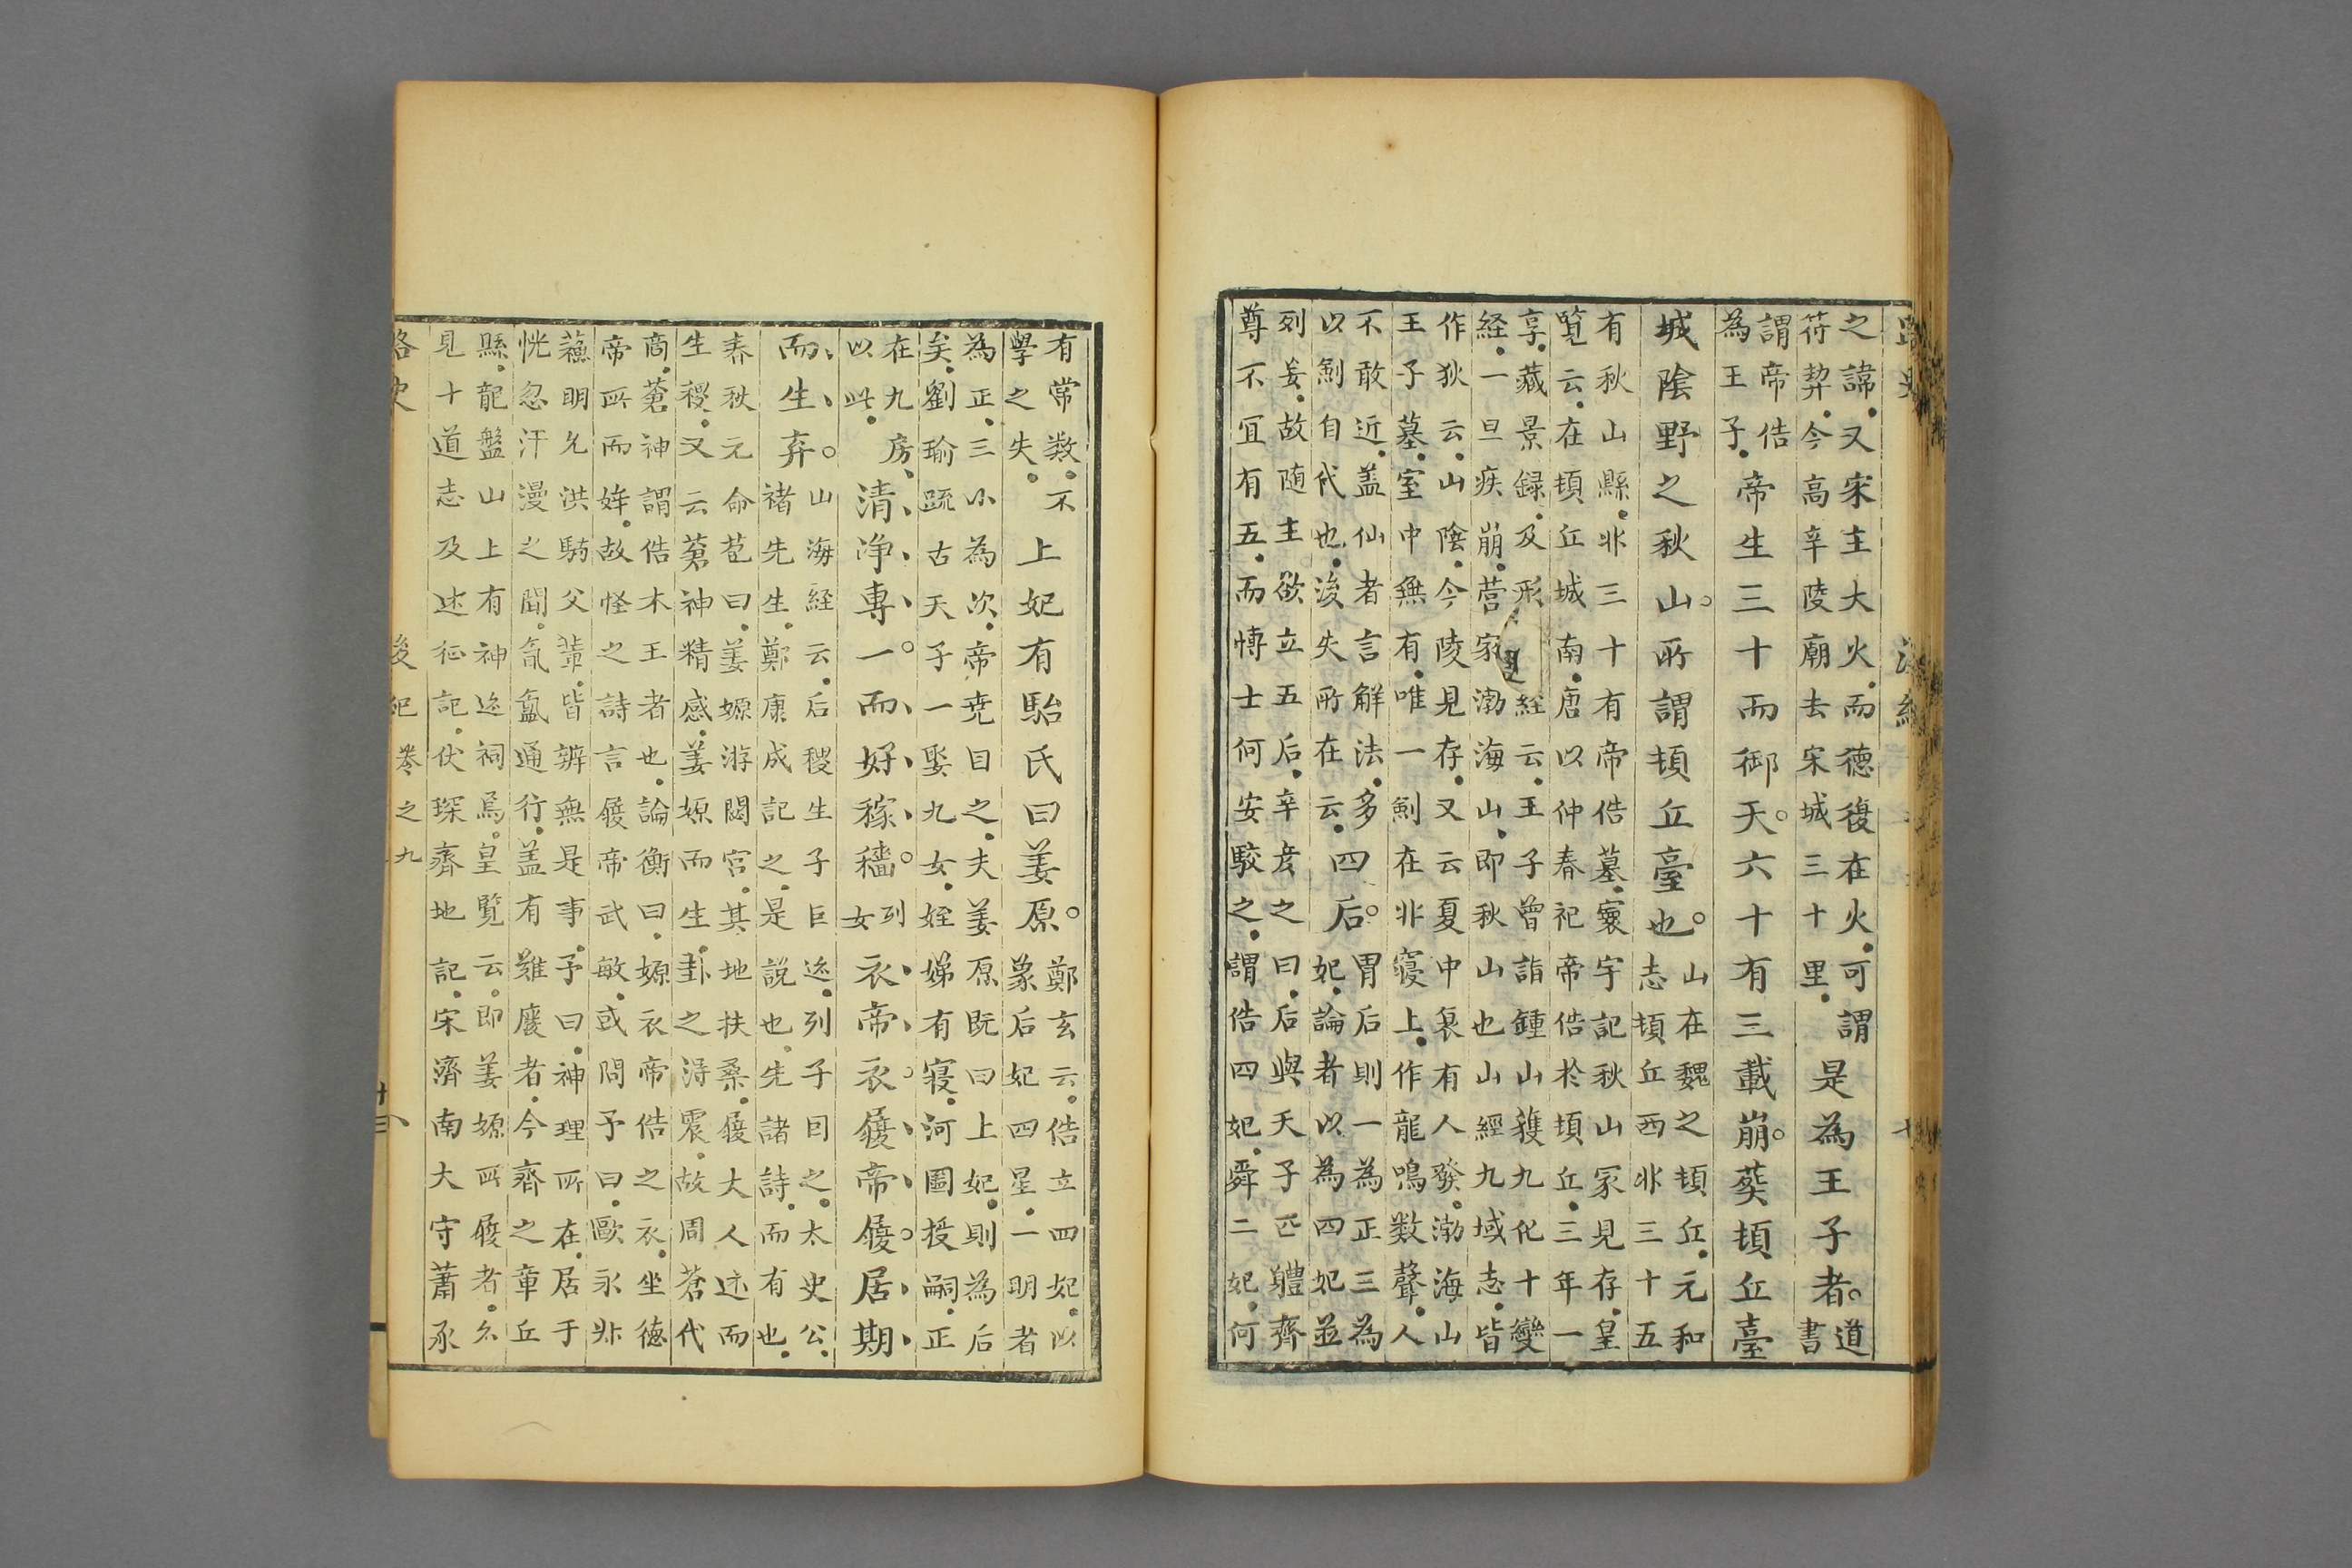 之諱又宋主大火而德復在火可謂
符契今高辛陵廟去宋城三十里
是為王子者
道
書
謂帝俈
為王子
帝生三十而御天六十有三載崩葬頓丘臺
城陰野之秋山所謂頓丘臺也
山在魏之頓丘元和
志頓丘西北三十五
有秋山縣北三十有帝俈墓寰宇記秋山冡見存皇
覽云在頓丘城南唐以仲春祀帝俈於頓丘三年一
享藏景録及形經云王子曽詣鍾山獲九化十變
経一旦疾崩營冡渤海山即秋山也山經九域志皆
作狄云山陰今陵見存又云夏中裒有人發渤海山
王子墓室中無有唯一劍在北寢上作龍鳴数聲人
不敢近盖仙者言解法多
以劍自代也後失所在云
四后
胃后則一為正三為
妃論者以為四妃並
列妾故随主欲立五后辛彦之曰后與天子匹軆齊
尊不冝有五而愽士何安駮之謂俈四妃舜二妃何
有常数不
學之失
上妃有駘氏曰姜原
鄭玄云俈立四妃以
象后妃四星一明者
為正三小為次帝尭目之夫姜原既曰上妃則為后
矣劉瑜䟽古天子一娶九女姪娣有寝河圖授嗣正
在九房
以此
清净專一而好稼穡
列
女
衣帝衣履帝履居期
而生弃
山海経云后稷生子巨迹列子目之太史公
褚先生鄭康成記之是説也先諸詩而有也
春秋元命苞曰姜嫄游閟宫其地扶桑履大人迹而
生稷又云蒼神精感姜嫄而生卦之淂震故周蒼代
商蒼神謂俈木王者也論衡曰嫄衣帝俈之衣坐徳
帝所而姙故怪之詩言履帝武敏或問予曰歐永非
蘓明允洪駒父軰皆辨無是事予曰神理所在居于
恍忽汗漫之間氤氲通行盖有難廢者今齊之章丘
縣龍盤山上有神迹祠焉皇覽云即姜嫄所履者厺
見十道志及述征記伏琛齊地記宋濟南大守蕭承
路史
後紀
卷之九